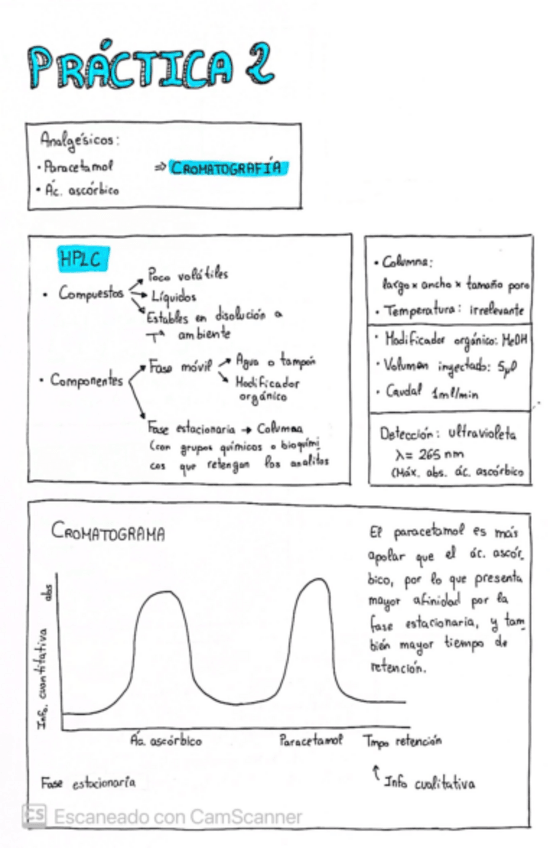 PRÁCTICA 2
Analgésicos:
• Paracetamol ⇒ CROMATOGRAFÍA
• Ác. ascórbico
HPLC
• Compuestos
Poco volátiles
Líquidos
Estables en disolución a
Tª ambiente
• Componentes
Fase móvil
Agua o tampón
Modificador
orgánico
Fase estacionaria → Columna
(con grupos químicos o bioquími
cos que retengan los analitos
• Columna:
largo x ancho x tamaño poro
• Temperatura: irrelevante
• Modificador orgánico: MeOH
• Volumen inyectado: 5μl
• Caudal 1ml/min
Detección: ultravioleta
λ = 265 nm
(Máx. abs. ác. ascórbico
CROMATOGRAMA
El paracetamol es más
apolar que el ác. ascór_
bico, por lo que presenta
mayor afinidad por la
fase estacionaria, y tam_
bién mayor tiempo de
retención.
abs
Info. cuantitativa
Ác. ascórbico
Paracetamol
Tmpo retención
↑ Info cualitativa
Fase estacionaria
CS Escaneado con CamScanner